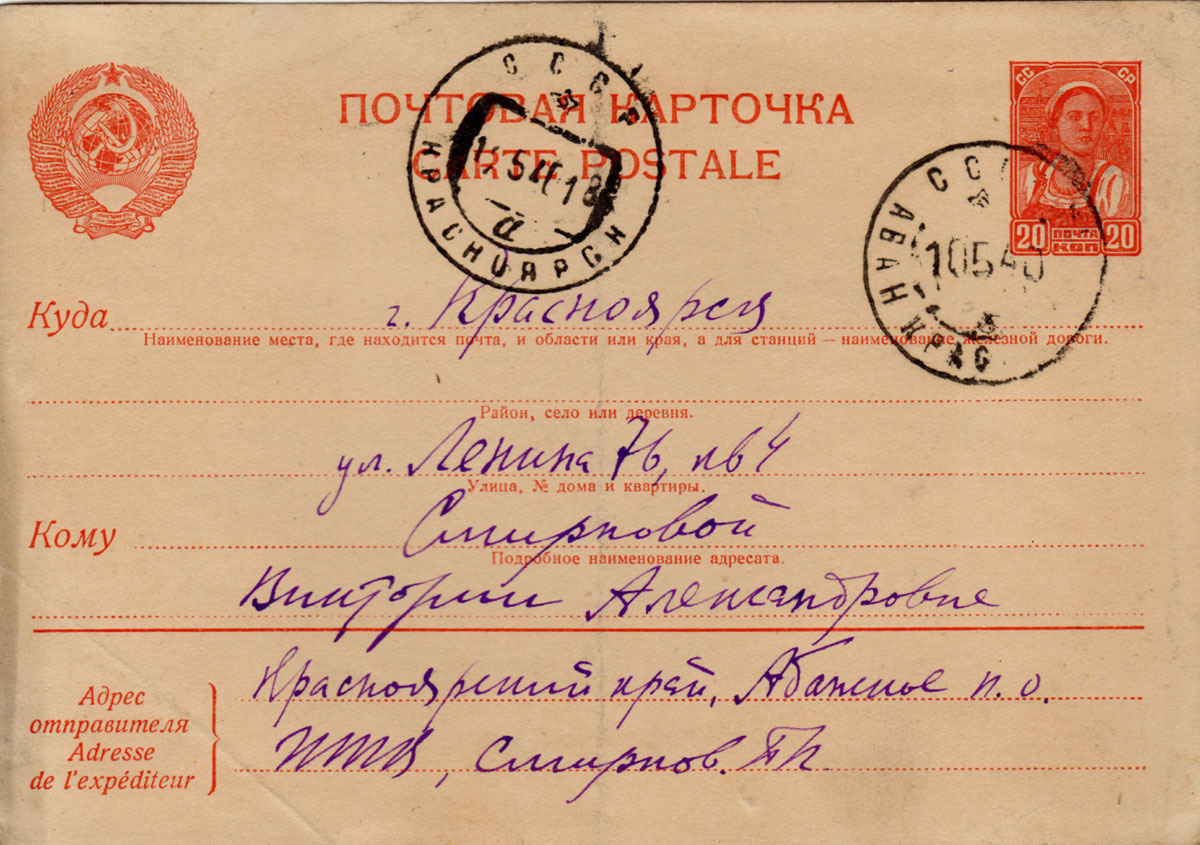 ПОЧТОВАЯ КАРТОЧКА
CARTE POSTALE
СССР
КРАСНОЯРСК
5 40 18
а
СС СР
20 ПОЧТА КОП 20
АБАН КРАС
10 5 40
Куда г. Красноярск
Наименование места, где находится почта, и области или края, а для станций — наименование железной дороги.
Район, село или деревня.
ул. Ленина 76, кв 4
Улица, № дома и квартиры.
Кому Смирновой
Подробное наименование адресата.
Виктории Александровне
Адрес отправителя
Adresse de l'expéditeur
Красноярский край, Абанское п.о.
Смирнов.